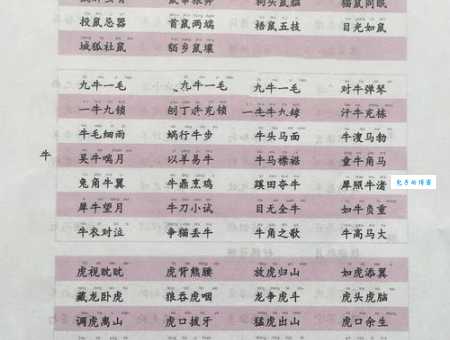 投鼠忌器 首鼠两端 梧鼠五技 目光如鼠
城狐社鼠 貂乡鼠壤
九牛一毛 九牛一毛 九牛一毛 对牛弹琴
一牛九锁 刨丁术克锁 一牛九锁 汗牛充栋
牛毛细雨 蜗行牛步 牛头马面 牛溲马勃
牛
吴牛喘月 以羊易牛 牛马襟裾 童牛角马
兔角牛翼 牛鼎烹鸡 蹊田夺牛 犀照牛渚
犀牛望月 牛刀小试 目无全牛 如牛负重
牛衣对泣 争猫丢牛 牛角之歌 牛高马大
虎视眈眈 虎背熊腰 放虎归山 如虎添翼
藏龙卧虎 狼吞虎咽 龙争虎斗 虎头虎脑
调虎离山 虎口拔牙 猛虎出山 虎口余生